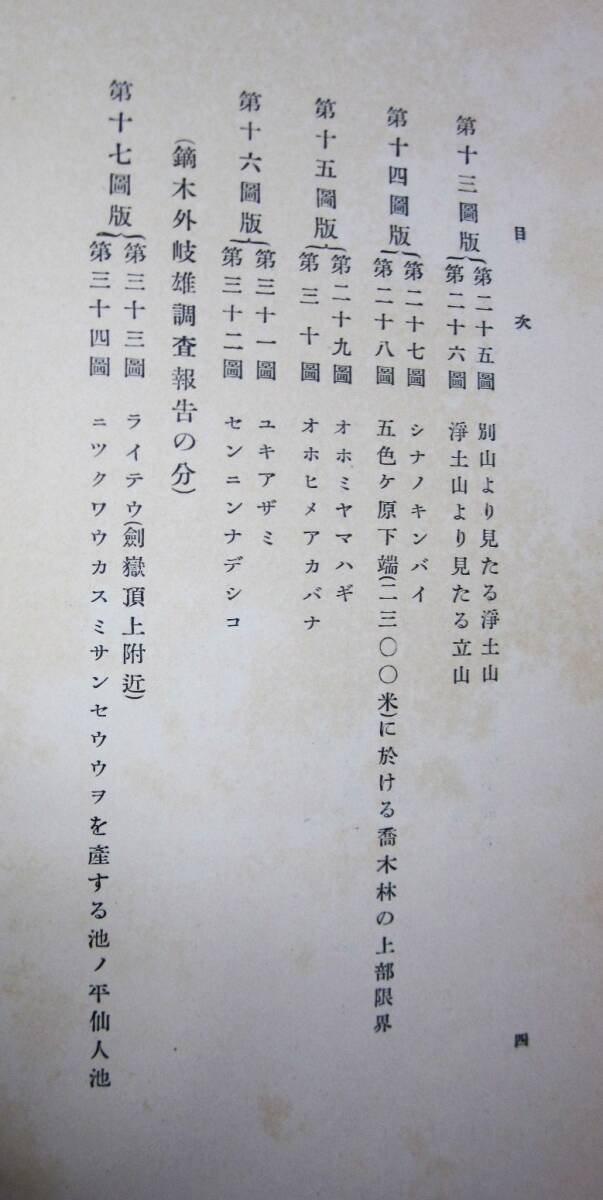 目次
四
第十三圖版
第二十五圖 別山より見たる淨土山
第二十六圖 淨土山より見たる立山
第十四圖版
第二十七圖 シナノキンバイ
第二十八圖 五色ケ原下端(二三〇〇米)に於ける喬木林の上部限界
第十五圖版
第二十九圖 オホミヤマハギ
第三十圖 オホヒメアカバナ
第十六圖版
第三十一圖 ユキアザミ
第三十二圖 センニンナデシコ
(鏑木外岐雄調査報告の分)
第十七圖版
第三十三圖 ライテウ(劍嶽頂上附近)
第三十四圖 ニツクワウカスミサンセウウヲを產する池ノ平仙人池